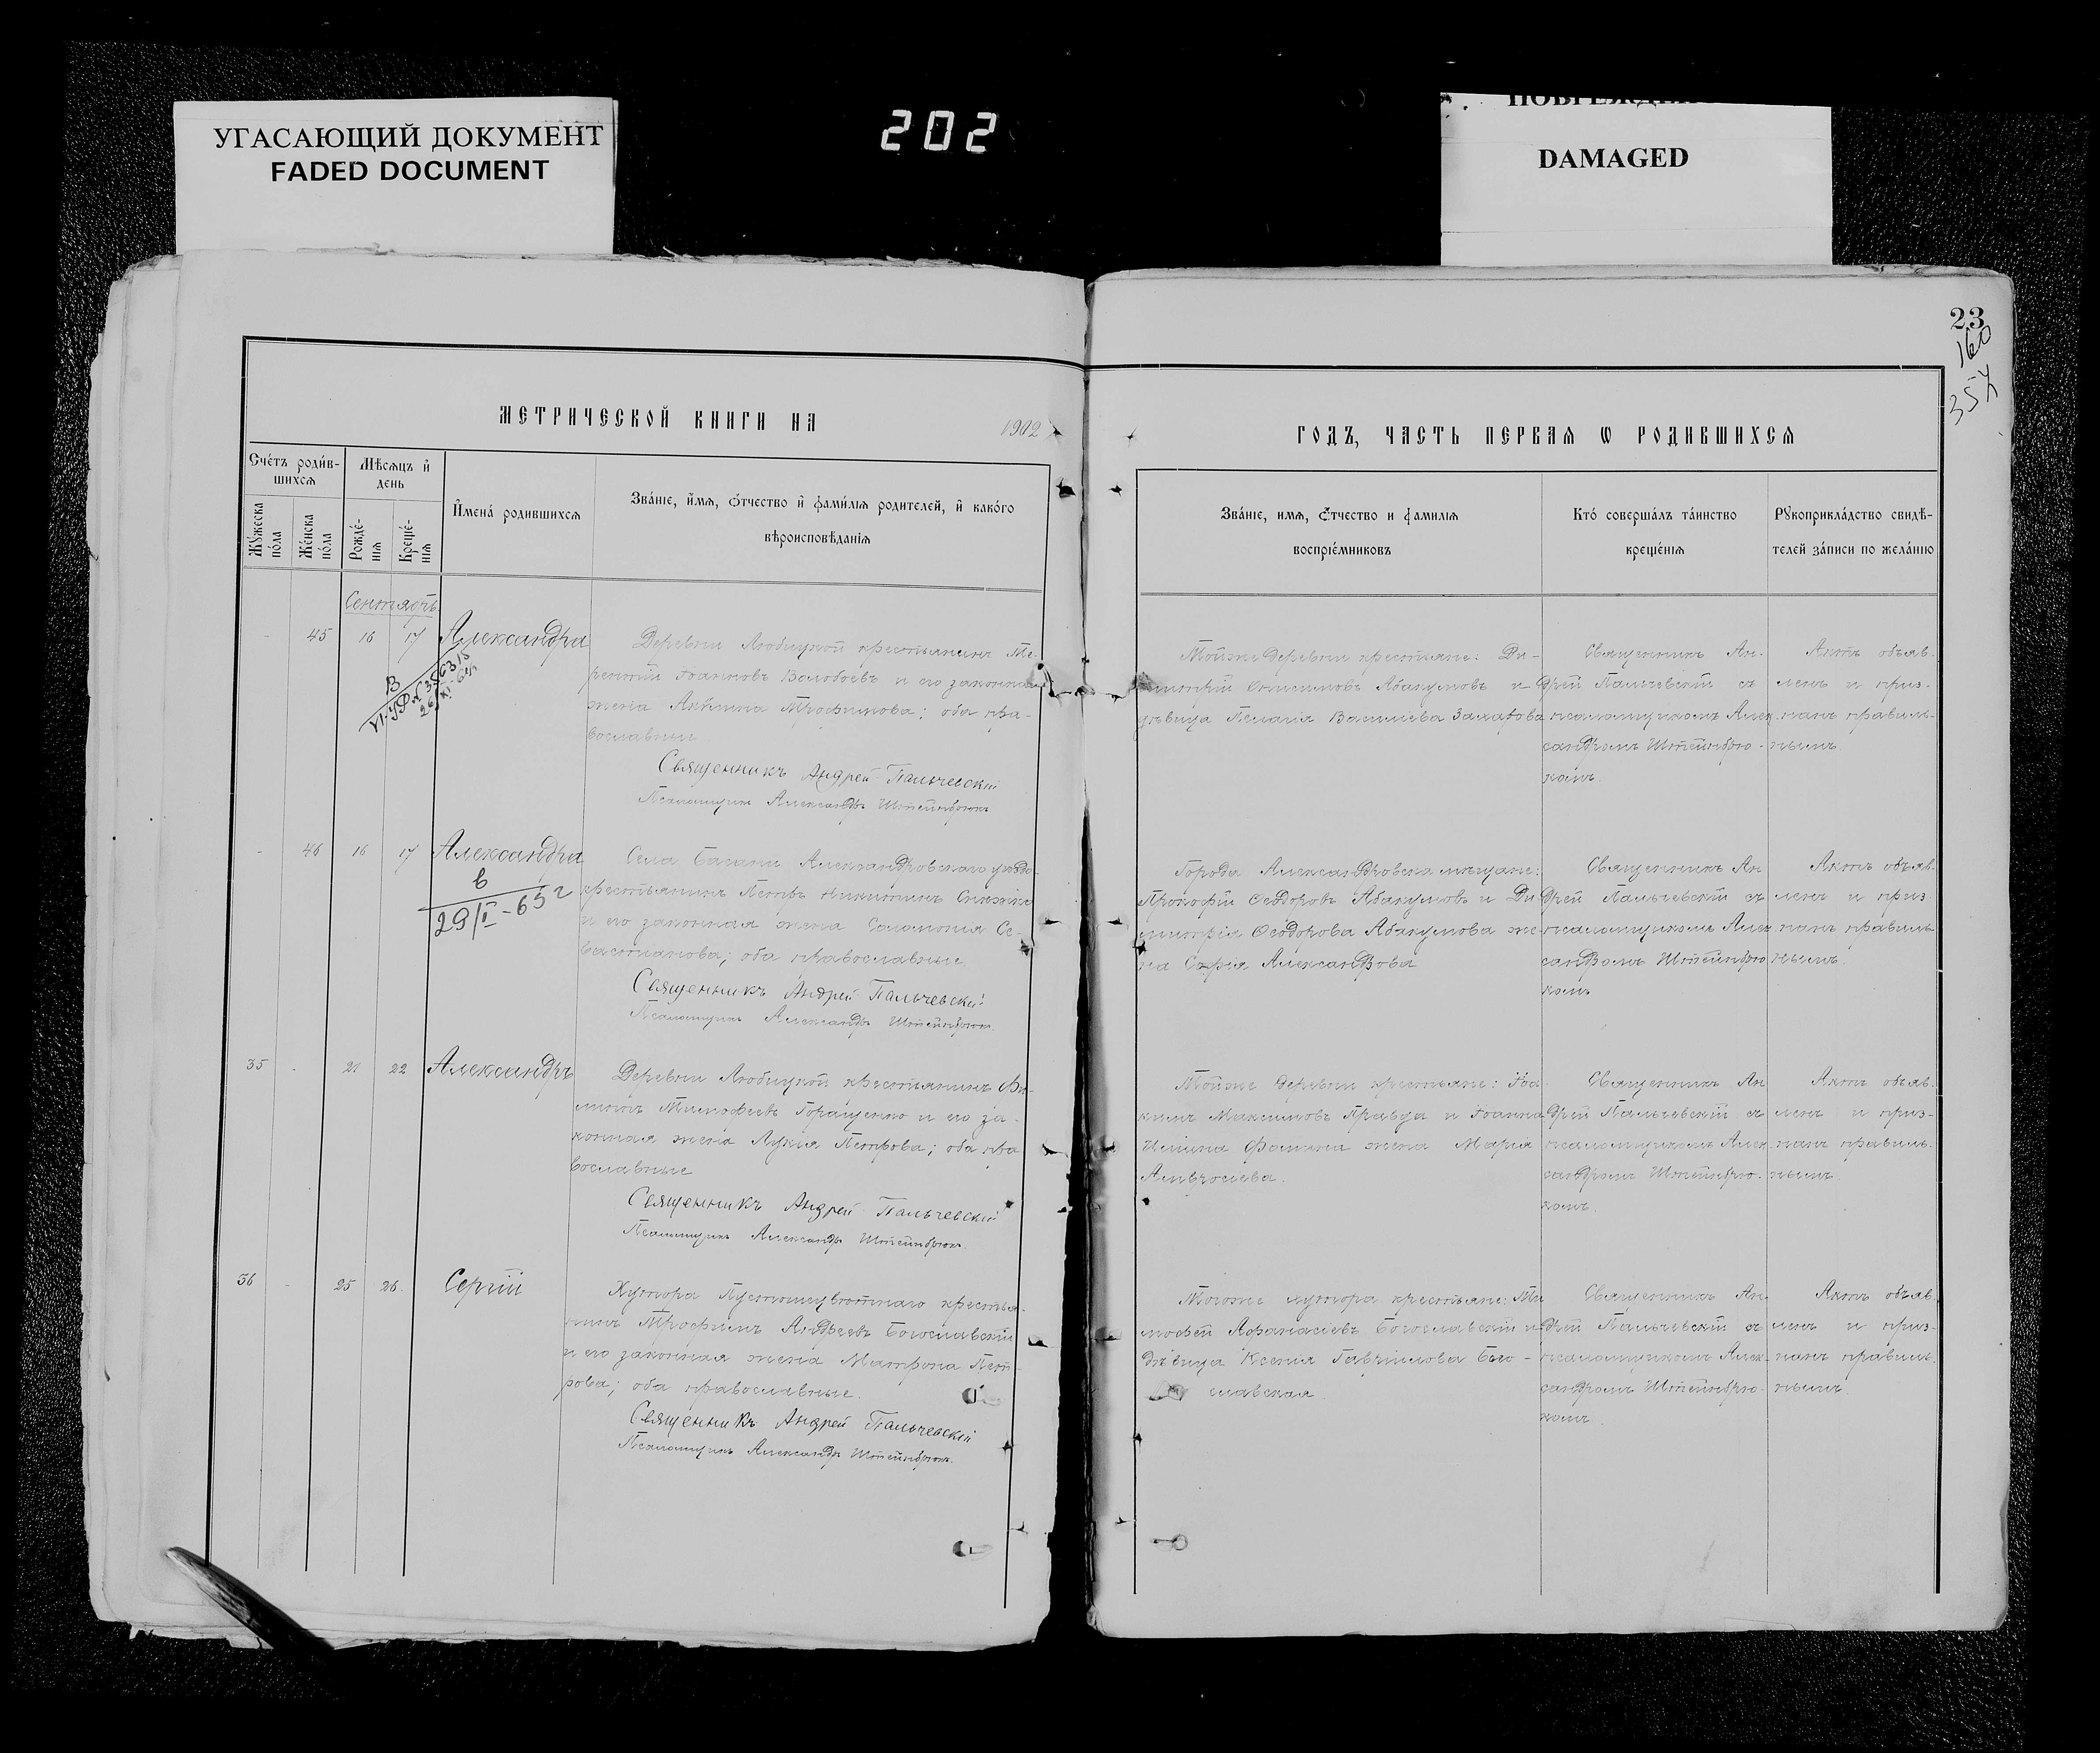 УГАСАЮЩИЙ ДОКУМЕНТ
FADED DOCUMENT
202
DAMAGED
23
160
МЕТРИЧЕСКОЙ КНИГИ НА 1902
ГОДЪ, ЧАСТЬ ПЕРВАѦ Ѡ РОДИВШИХСѦ
Сче́тъ роди́в-
шихсѧ
Мѣсѧцъ и҆
день
И҆мена́ родившихсѧ
Зва́нїе, и҆́мѧ, ѻ҆́тчество и҆ фами́лїѧ родителей, и҆ како́го
вѣроисповѣ́данїѧ
Мꙋ́жеска
по́ла
Же́нска
по́ла
Рожде́-
нїѧ
Креще́-
нїѧ
Зва́нїе, имѧ, ѻ҆́тчество и фамилїѧ
воспрїе́мниковъ
Кто́ соверша́лъ та́инство
креще́нїѧ
Рꙋкоприкла́дство свидѣ́-
телей за́писи по жела́нїю
Сентябрь
- 45 16 17 Александра
Деревни Любицкой крестьянинъ Те-
рентій Іоанновъ Волобоевъ и его законная
жена Акилина Трофимова; оба пра-
вославные
Священникъ Андрей Пальчевскій
Псаломщикъ Александръ Штейнбрюкъ
Тойже деревни крестьяне: Ди-
митрій Онисимовъ Абакумовъ и
дѣвица Пелагія Василіева
Священникъ Ан-
дрей Пальчевскій съ
псаломщикомъ Алек-
сандромъ Штейнбрю-
комъ.
Актъ объяв-
ленъ и приз-
нанъ правиль-
нымъ.
- 46 16 17 Александра
в
29/I-65 г
Села Басани Александровскаго уѣзда
крестьянинъ Петръ Никитинъ
и его законная жена Соломонія Се-
вастианова; оба православные
Священникъ Андрей Пальчевскій
Псаломщикъ Александръ Штейнбрюкъ
Города Александровска мѣщане:
Прокофій Ѳеодоровъ Абакумовъ и Ди-
митрія Ѳеодорова Абакумова же-
на Софія Александрова
Священникъ Ан
дрей Пальчевскій съ
псаломщикомъ Алек
сандромъ Штейнбрю
комъ
Актъ объяв-
ленъ и приз
нанъ правиль
нымъ.
35 - 21 22 Александръ
Деревни Любицкой крестьянинъ Фи-
липпъ Тимофеевъ Горащенко и его за-
конная жена Лукія Петрова; оба пра
вославные
Священникъ Андрей Пальчевскій
Псаломщикъ Александръ Штейнбрюкъ
Тойже деревни крестьяне: Іоа
кимъ Максимовъ Правда и Іоанна
жена Марѳа
Амвросіева.
Священникъ Ан
дрей Пальчевскій съ
псаломщикомъ Алек
сандромъ Штейнбрю-
комъ.
Актъ объяв-
ленъ и приз-
нанъ правиль-
нымъ.
36 - 25 26 Сергій
Хутора крестья-
нинъ Трофимъ Андреевъ Богославскій
и его законная жена Матрона Пет-
рова; оба православные.
Священникъ Андрей Пальчевскій
Псаломщикъ Александръ Штейнбрюкъ.
Тогоже хутора крестьяне: Ти
мофей Афанасіевъ Богославскій и
дѣвица Ксенія Гавріилова Бого-
славская.
Священникъ Ан
дрей Пальчевскій съ
псаломщикомъ Алек-
сандромъ Штейнбрю-
комъ.
Актъ объяв-
ленъ и приз-
нанъ правиль
нымъ